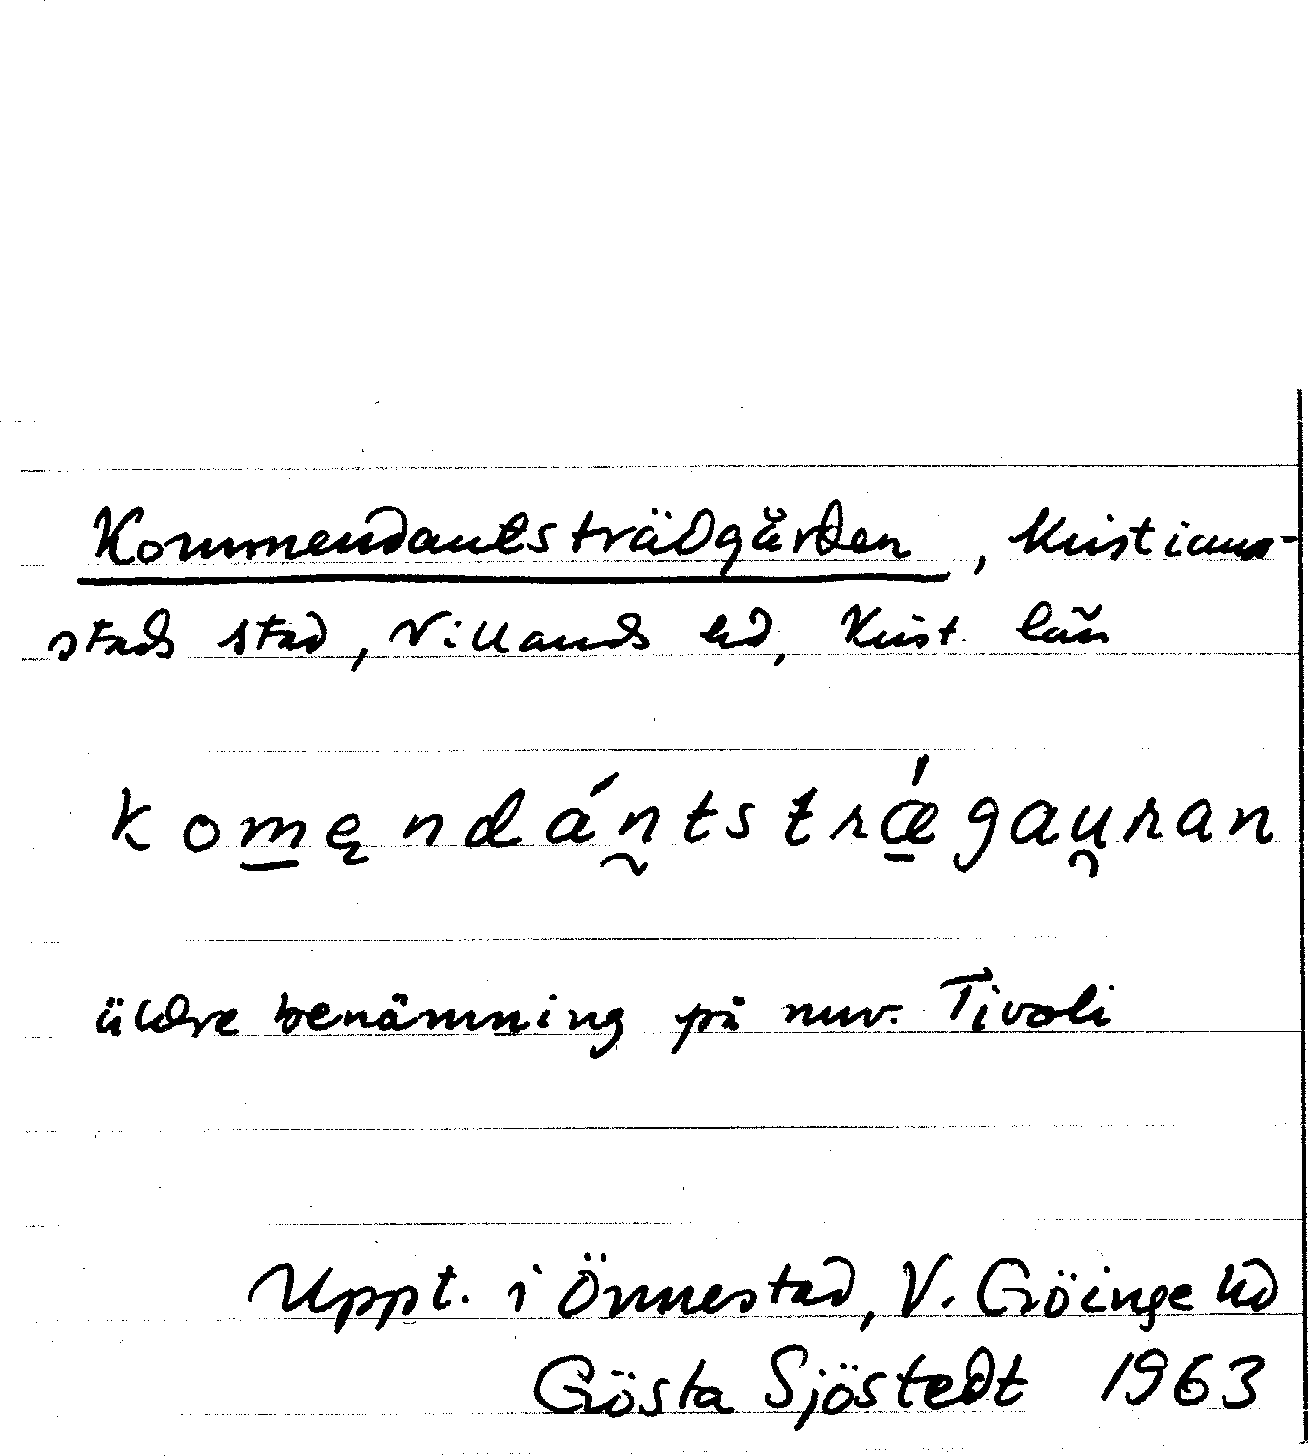 Kommendantsträdgården, Kristian-
stads stad, Villands hd, Krist. län
komęndán̰tstrǽ̱gau̯ran
äldre benämning på nuv. Tivoli
Uppt. i Önnestad, V. Göinge hd
Gösta Sjöstedt 1963